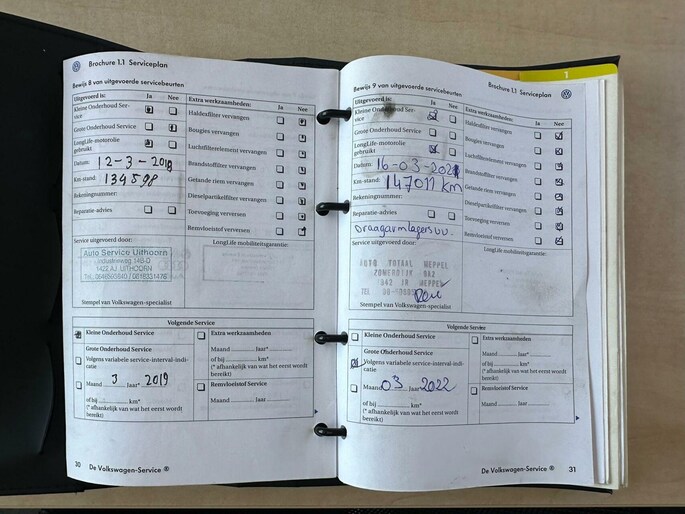 Brochure 1.1 Serviceplan
Bewijs 8 van uitgevoerde servicebeurten
Uitgevoerd is: Ja Nee
Kleine Onderhoud Ser-
vice
Grote Onderhoud Service
LongLife-motorolie
gebruikt
Datum: 12-3-2018
Km-stand: 134598
Rekeningnummer:
Reparatie-advies
Service uitgevoerd door:
Auto Service Uithoorn
Industrieweg
1422 AJ UITHOORN
Stempel van Volkswagen-specialist
Extra werkzaamheden: Ja Nee
Haldexfilter vervangen
Bougies vervangen
Luchtfilterelement vervangen
Brandstoffilter vervangen
Getande riem vervangen
Dieselpartikelfilter vervangen
Toevoeging verversen
Remvloeistof verversen
LongLife mobiliteitsgarantie:
Volgende Service
Kleine Onderhoud Service
Grote Onderhoud Service
Volgens variabele service-interval-indi-
catie
Maand 3 Jaar 2019
of bij km*
(* afhankelijk van wat het eerst wordt
bereikt)
Extra werkzaamheden
Maand Jaar
of bij km*
(* afhankelijk van wat het eerst wordt
bereikt)
Remvloeistof Service
Maand Jaar
30 De Volkswagen-Service ®
Brochure 1.1 Serviceplan
1
Bewijs 9 van uitgevoerde servicebeurten
Uitgevoerd is: Ja Nee
Kleine Onderhoud Ser-
vice
Grote Onderhoud Service
LongLife-motorolie
gebruikt
Datum: 16-03-2021
Km-stand: 147011 km
Rekeningnummer:
Reparatie-advies
Draagarmlagers vv.
Service uitgevoerd door:
AUTO TOTAAL MEPPEL
ZOMERDIJK
MEPPEL
TEL
Stempel van Volkswagen-specialist
Extra werkzaamheden: Ja Nee
Haldexfilter vervangen
Bougies vervangen
Luchtfilterelement vervangen
Brandstoffilter vervangen
Getande riem vervangen
Dieselpartikelfilter vervangen
Toevoeging verversen
Remvloeistof verversen
LongLife mobiliteitsgarantie:
Volgende Service
Kleine Onderhoud Service
Grote Onderhoud Service
Volgens variabele service-interval-indi-
catie
Maand 03 Jaar 2022
of bij km*
(* afhankelijk van wat het eerst wordt
bereikt)
Extra werkzaamheden
Maand Jaar
of bij km*
(* afhankelijk van wat het eerst wordt
bereikt)
Remvloeistof Service
Maand Jaar
De Volkswagen-Service ® 31